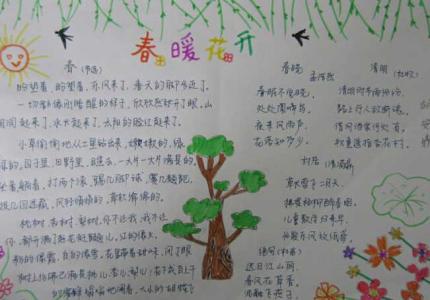 春暖花开
春(节选)
盼望着,盼望着,东风来了,春天的脚步近了。
一切都像刚睡醒的样子,欣欣然张开了眼。山
朗润起来了,水长起来了,太阳的脸红起来了。
小草偷偷地从土里钻出来,嫩嫩的,绿
绿的。园子里,田野里,瞧去,一大片一大片满是的。
坐着,躺着,打两个滚,踢几脚球,赛几趟跑,
捉几回迷藏。风轻悄悄的,草软绵绵的。
桃树、杏树、梨树,你不让我,我不让
你,都开满了花赶趟儿。红的像火,
粉的像霞,白的像雪。花里带着甜味,闭了眼
树上仿佛已满是桃儿、杏儿、梨儿!花下成百上千
的蜜蜂嗡嗡地闹着,大小的蝴蝶飞
春晓
孟浩然
春眠不觉晓,
处处闻啼鸟。
夜来风雨声,
花落知多少。
清明(杜牧)
清明时节雨纷纷,
路上行人欲断魂。
借问酒家何处有,
牧童遥指杏花村。
村居(清 高鼎)
草长莺飞二月天,
拂堤杨柳醉春烟。
儿童散学归来早,
忙趁东风放纸鸢。
绝句(杜甫)
迟日江山丽,
春风花草香。
泥融飞燕子,